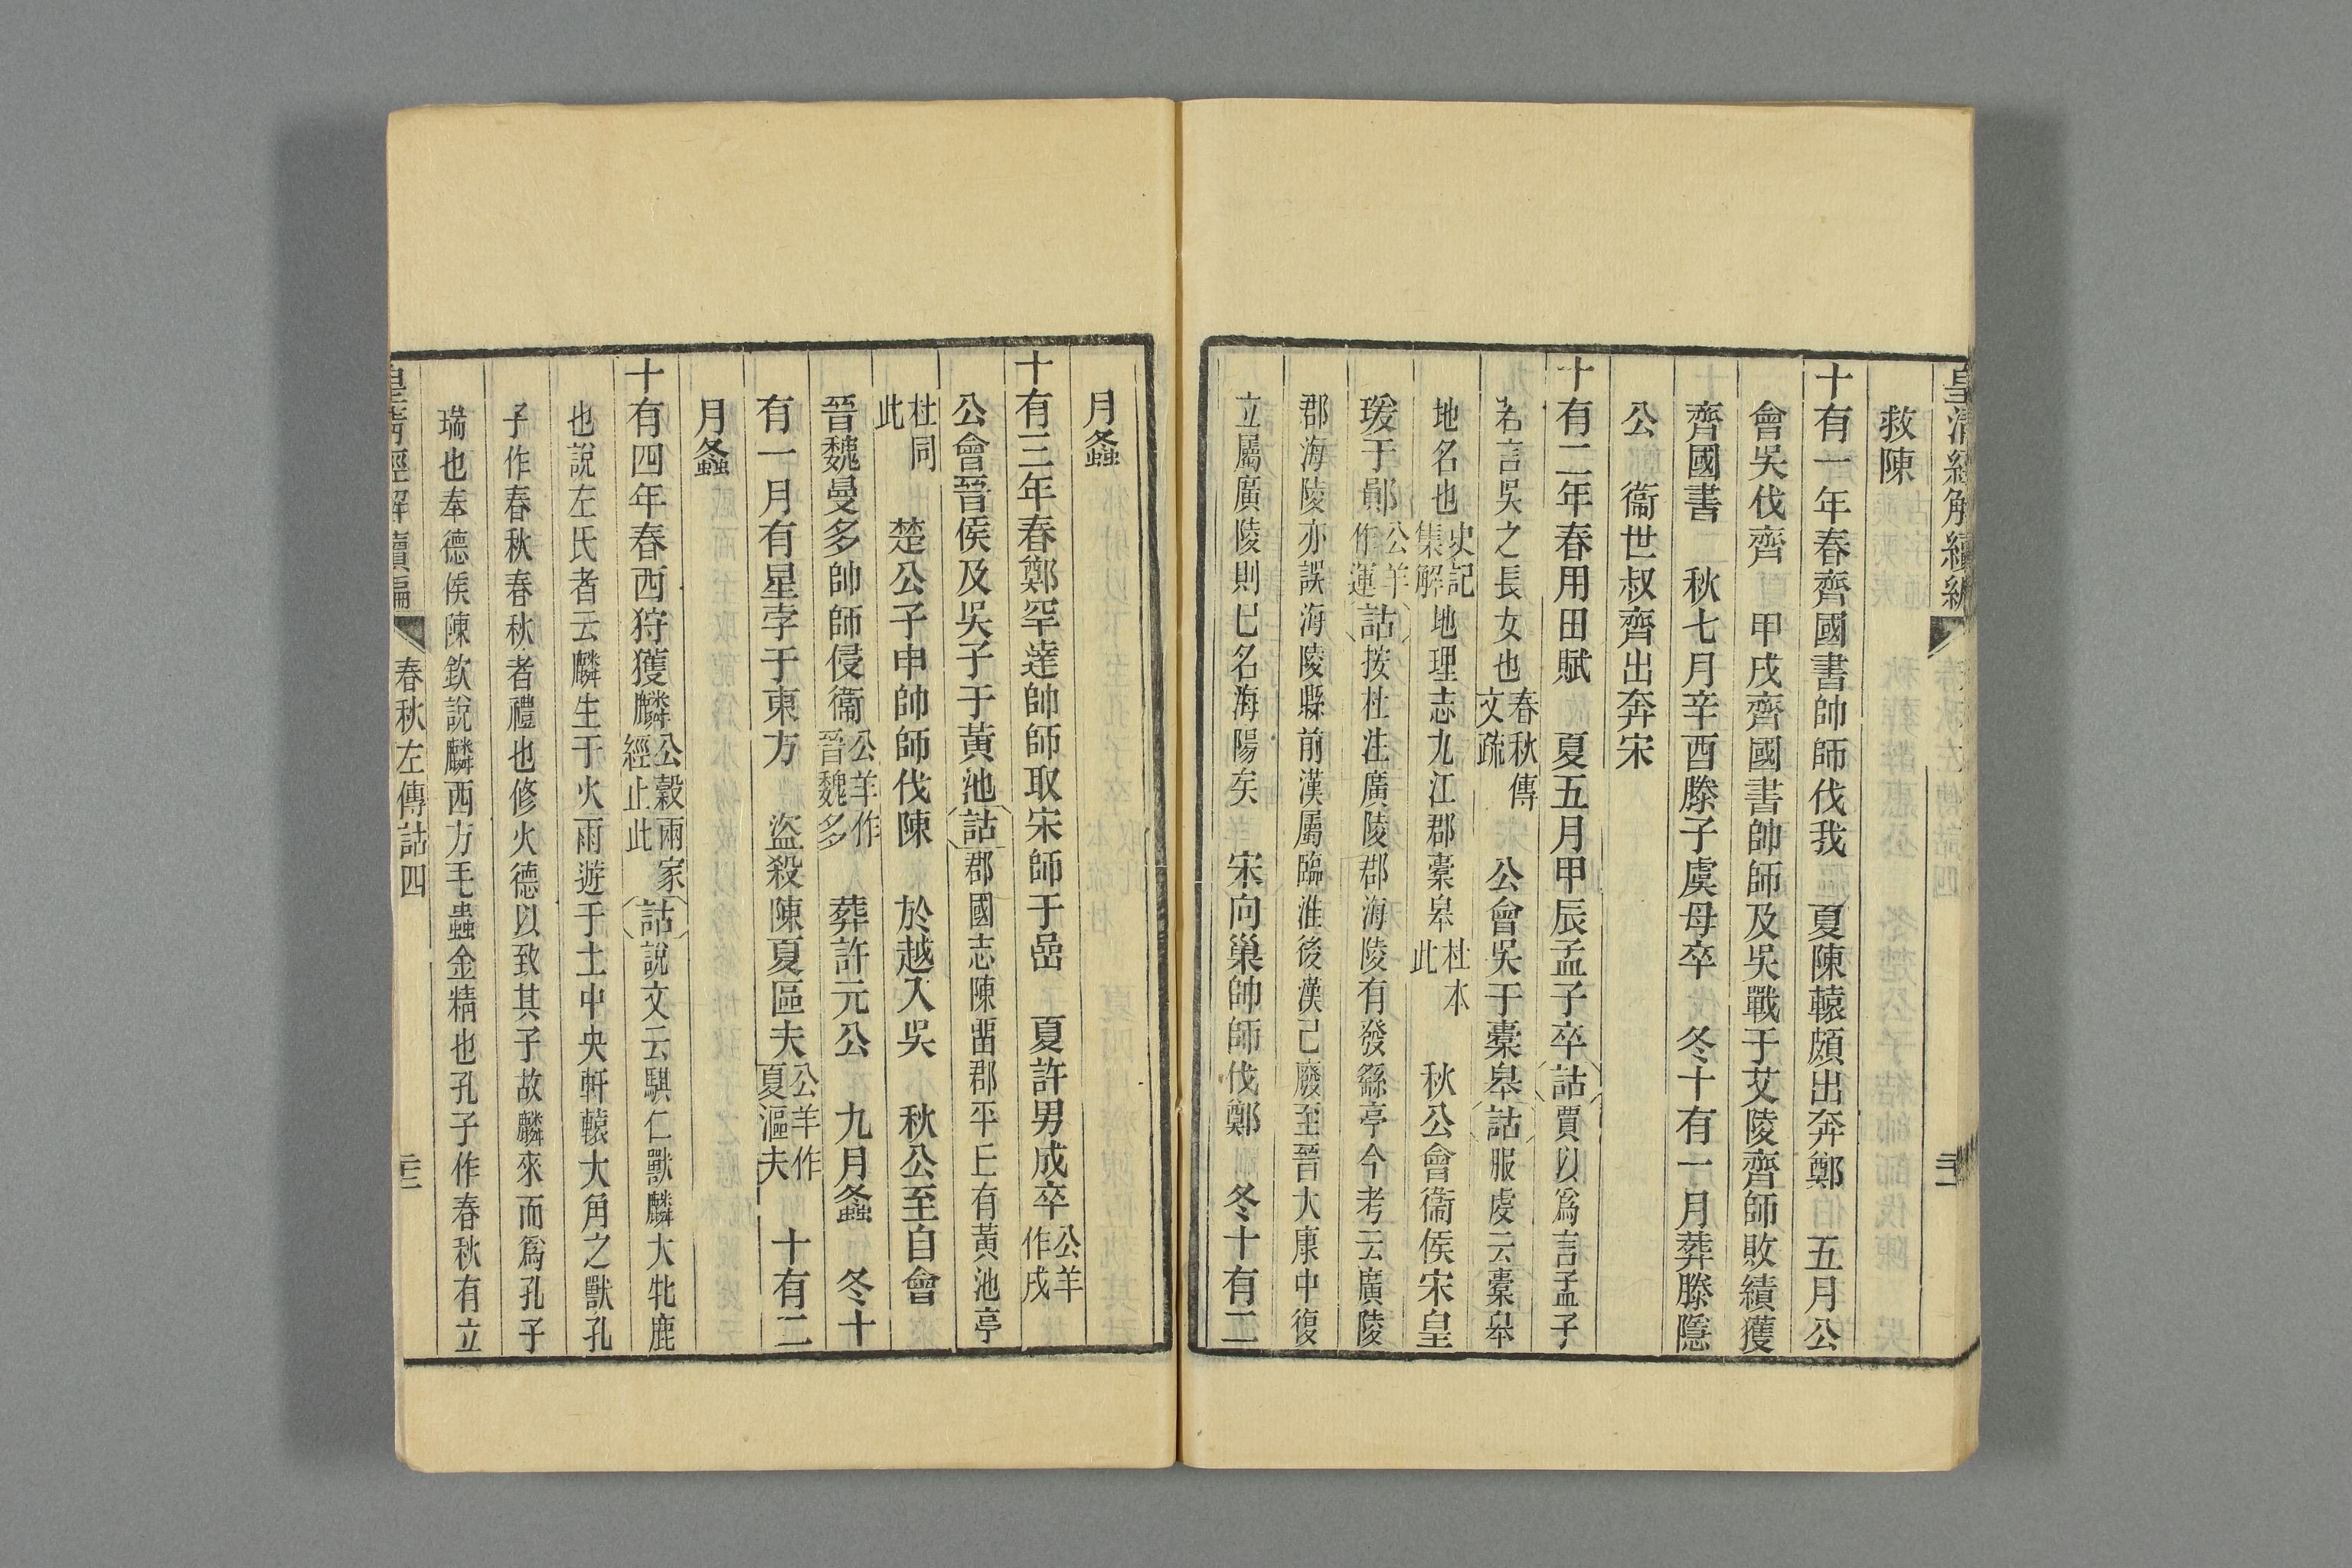 皇清經解續編
救陳
十有一年春齊國書帥師伐我　夏陳轅頗出奔鄭　五月公
會吳伐齊　甲戌齊國書帥師及吳戰于艾陵齊師敗績獲
齊國書　秋七月辛酉滕子虞母卒　冬十有一月葬滕隱
公　衞世叔齊出奔宋
十有二年春用田賦　夏五月甲辰孟子卒詁賈以爲言孟子
若言吳之長女也春秋傳文疏　公會吳于橐皋詁服虔云橐皋
地名也史記集解地理志九江郡橐皋杜本此　秋公會衞侯宋皇
瑗于鄖公羊作運詁按杜注廣陵郡海陵有發繇亭今考云廣陵
郡海陵亦誤海陵縣前漢屬臨淮後漢已廢至晉大康中復
立屬廣陵則已名海陽矣　宋向巢帥師伐鄭　冬十有二
月螽
十有三年春鄭罕達帥師取宋師于嵒　夏許男成卒公羊作戌
公會晉侯及吳子于黃池詁郡國志陳畱郡平上有黃池亭
杜同此　楚公子申帥師伐陳　於越入吳　秋公至自會
晉魏曼多帥師侵衞公羊作晉魏多　葬許元公　九月螽　冬十
有一月有星孛于東方　盜殺陳夏區夫公羊作夏漚夫　十有二
月螽
十有四年春西狩獲麟公穀兩家經止此詁說文云騏仁獸麟大牝鹿
也說左氏者云麟生于火而遊于土中央軒轅大角之獸孔
子作春秋春秋者禮也修火德以致其子故麟來而爲孔子
瑞也奉德侯陳欽說麟西方毛蟲金精也孔子作春秋有立
皇清經解續編　春秋左傳詁四